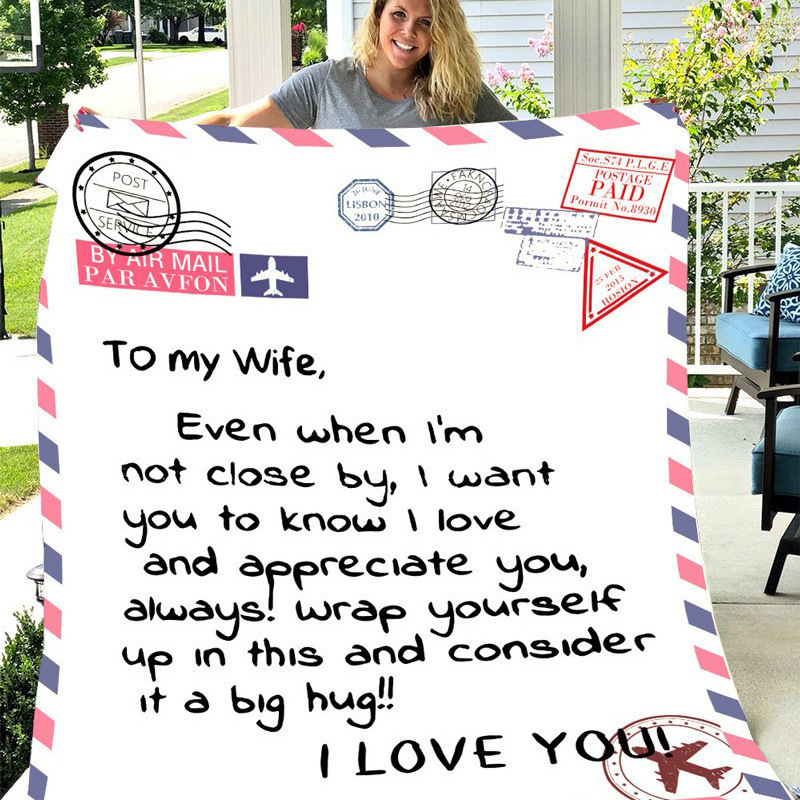 POST
SERVICE
BY AIR MAIL
PAR AVFON
26 JUNE
LISBON
2010
14
Soc.S74 P.L.G.E
POSTAGE
PAID
Pormit No.8930
25 FEB
2015
HOSION
To my Wife,
Even when I'm
not close by, I want
you to know I love
and appreciate you,
always! wrap yourself
up in this and consider
it a big hug!!
I LOVE YOU!